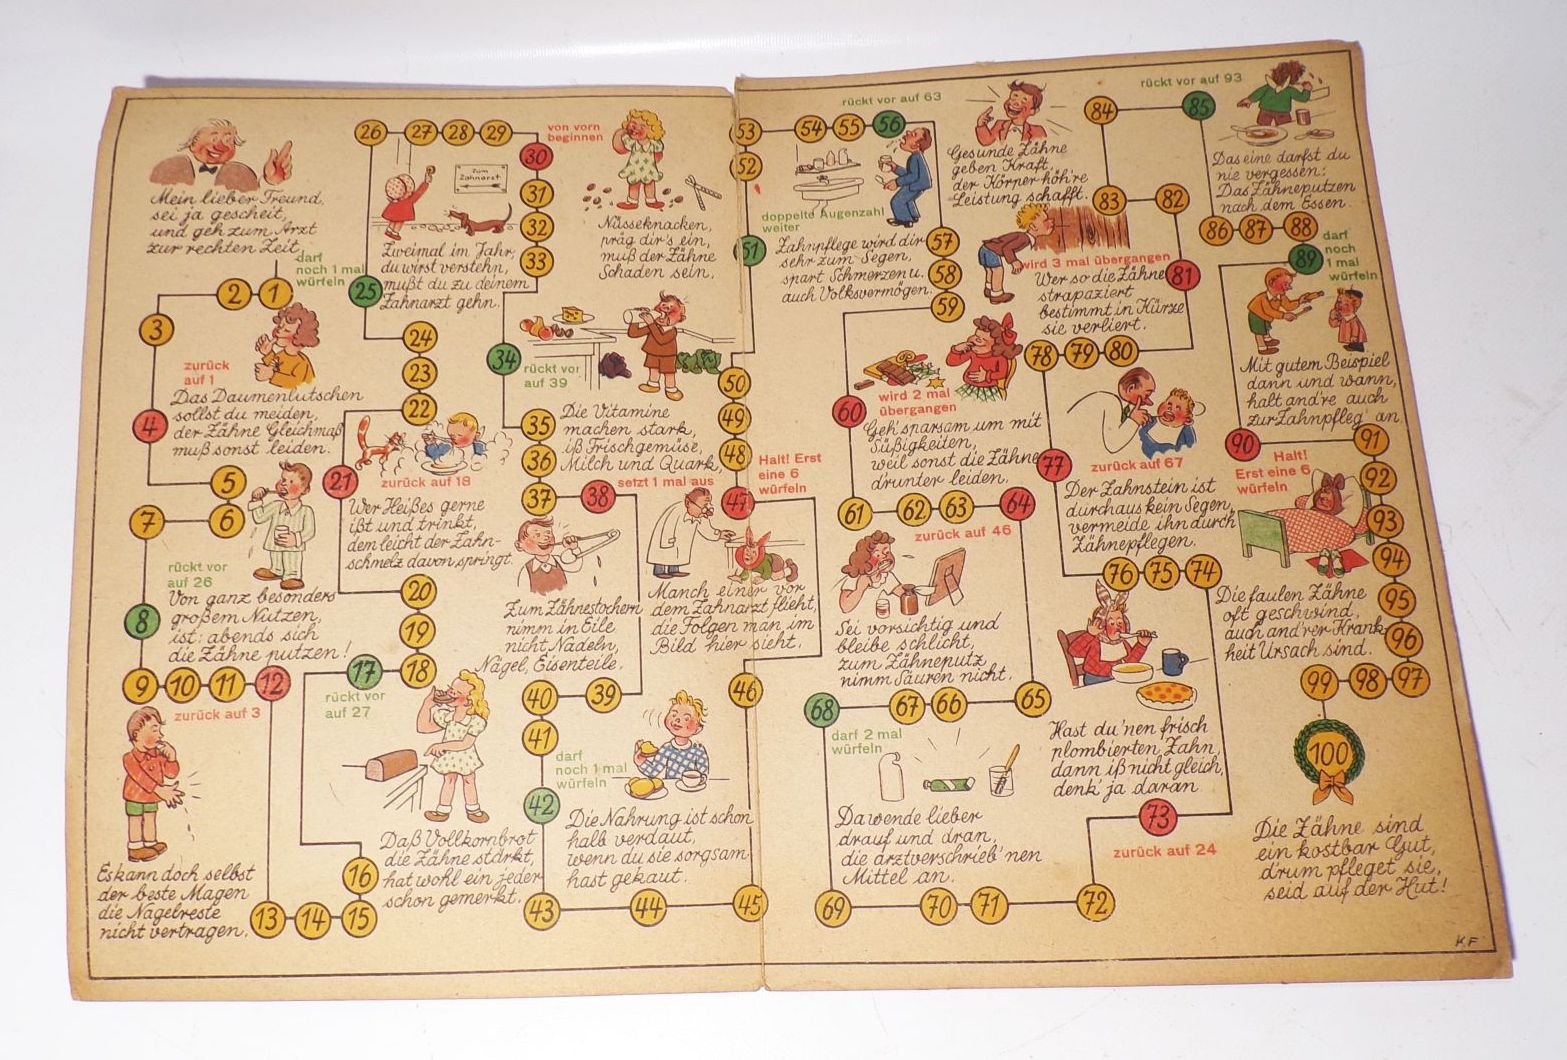 Mein lieber Freund,
sei ja gescheit,
und geh zum Arzt
zur rechten Zeit.
1
2
3
zurück
auf 1
4
Das Daumenlutschen
sollst du meiden,
der Zähne Gleichmaß
muß sonst leiden.
5
6
7
rückt vor
auf 26
8
Von ganz besonders
großem Nutzen,
ist: abends sich
die Zähne putzen!
9
10
11
12
zurück auf 3
Es kann doch selbst
der beste Magen
die Nägelreste
nicht vertragen.
13
14
15
16
17
rückt vor
auf 27
Daß Vollkornbrot
die Zähne stärkt,
hat wohl ein jeder
schon gemerkt.
18
19
20
21
zurück auf 18
Wer Heißes gerne
ißt und trinkt,
dem leicht der Zahn-
schmelz davon springt.
22
23
24
25
darf
noch 1 mal
würfeln
Zum
Zahnarzt
Zweimal im Jahr,
du wirst verstehn,
mußt du zu deinem
Zahnarzt gehn.
26
27
28
29
30
von vorn
beginnen
Nüsseknacken,
präg dir's ein,
muß der Zähne
Schaden sein.
31
32
33
34
rückt vor
auf 39
Die Vitamine
machen stark,
iß Frischgemüse,
Milch und Quark.
35
36
37
38
setzt 1 mal aus
Zum Zähnestochern
nimm in Eile
nicht Nadeln,
Nägel, Eisenteile.
39
40
41
42
darf
noch 1 mal
würfeln
Die Nahrung ist schon
halb verdaut,
wenn du sie sorgsam
hast gekaut.
43
44
45
46
47
Halt! Erst
eine 6
würfeln
Manch einer vor
dem Zahnarzt flieht,
die Folgen man im
Bild hier sieht.
48
49
50
51
doppelte Augenzahl
weiter
Zahnpflege wird dir
sehr zum Segen,
spart Schmerzen u.
auch Volksvermögen.
52
53
54
55
56
rückt vor auf 63
57
58
59
60
wird 2 mal
übergangen
Geh' sparsam um mit
Süßigkeiten,
weil sonst die Zähne
drunter leiden.
61
62
63
64
zurück auf 46
Sei vorsichtig und
bleibe schlicht,
zum Zähneputz
nimm Säuren nicht.
65
66
67
68
darf 2 mal
würfeln
Da wende lieber
drauf und dran,
die arztverschrieb'nen
Mittel an.
69
70
71
72
73
zurück auf 24
Hast du 'nen frisch
plombierten Zahn,
dann iß nicht gleich,
denk' ja daran.
74
75
76
77
zurück auf 67
Der Zahnstein ist
durchaus kein Segen,
vermeide ihn durch
Zähnepflegen.
78
79
80
81
wird 3 mal übergangen
Wer so die Zähne
strapaziert
bestimmt in Kürze
sie verliert.
82
83
84
Gesunde Zähne
geben Kraft,
der Körper höh're
Leistung schafft.
85
rückt vor auf 93
Das eine darfst du
nie vergessen:
Das Zähneputzen
nach dem Essen.
86
87
88
89
darf
noch
1 mal
würfeln
Mit gutem Beispiel
dann und wann,
halt and're auch
zur Zahnpfleg' an.
90
Halt!
Erst eine 6
würfeln
Die faulen Zähne
oft geschwind,
auch and'rer Krank-
heit Ursach sind.
91
92
93
94
95
96
97
98
99
100
Die Zähne sind
ein kostbar Gut,
drum pfleget sie,
seid auf der Hut!
KF